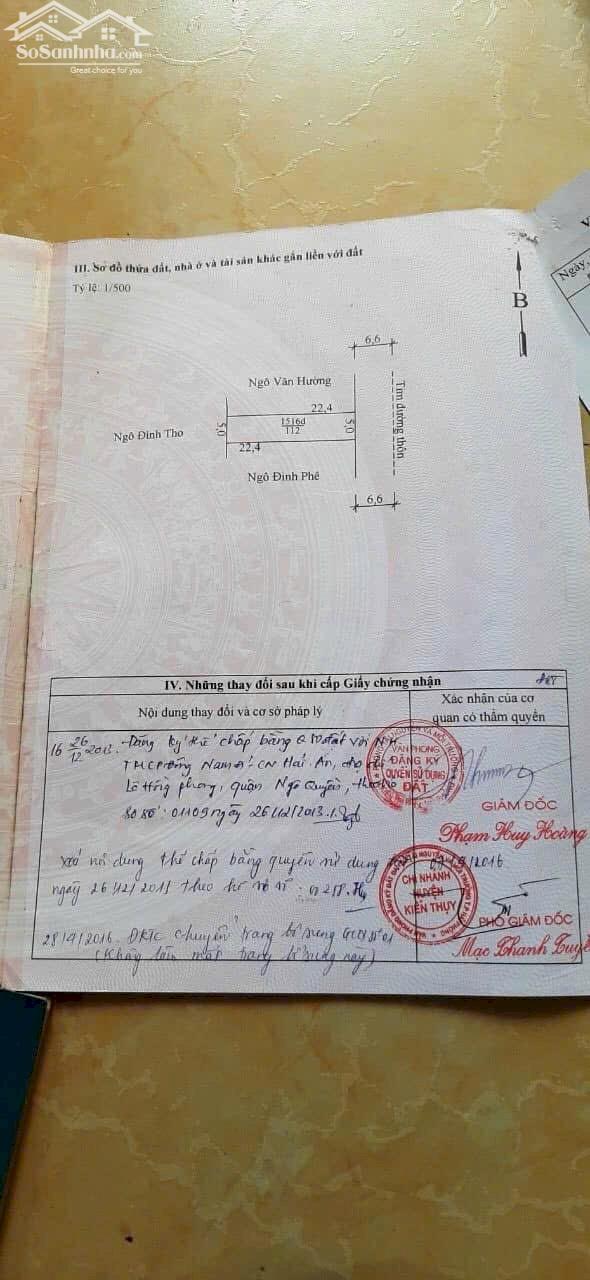 SoSanhnha.com
Great choice for you
III. Sơ đồ thửa đất, nhà ở và tài sản khác gắn liền với đất
Tỷ lệ: 1/500
Ngày,
B
6,6
Ngô Văn Hường
22,4
Ngô Đình Tho
5,0
1516d
112
5,0
Tim đường thôn
22,4
Ngô Đình Phê
6,6
IV. Những thay đổi sau khi cấp Giấy chứng nhận
Nội dung thay đổi và cơ sở pháp lý
Xác nhận của cơ quan có thẩm quyền
26/12/2013. Đăng ký thế chấp bằng QSD đất với NH
TMCP Đông Nam Á CN Hải An, địa chỉ
Lê Hồng Phong, quận Ngô Quyền, theo
số: 01109 ngày 26/12/2013
VĂN PHÒNG
ĐĂNG KÝ
QUYỀN SỬ DỤNG
ĐẤT
GIÁM ĐỐC
Phạm Huy Hoàng
Xoá nội dung thế chấp bằng quyền sử dụng
ngày 26/12/2013 theo hồ sơ số
/9/2016
CHI NHÁNH
HUYỆN
KIẾN THỤY
PHÓ GIÁM ĐỐC
Mạc Thanh Tuyề
28/9/2016. chuyển trang bổ sung GCN số 01
(Không trang bổ sung này)